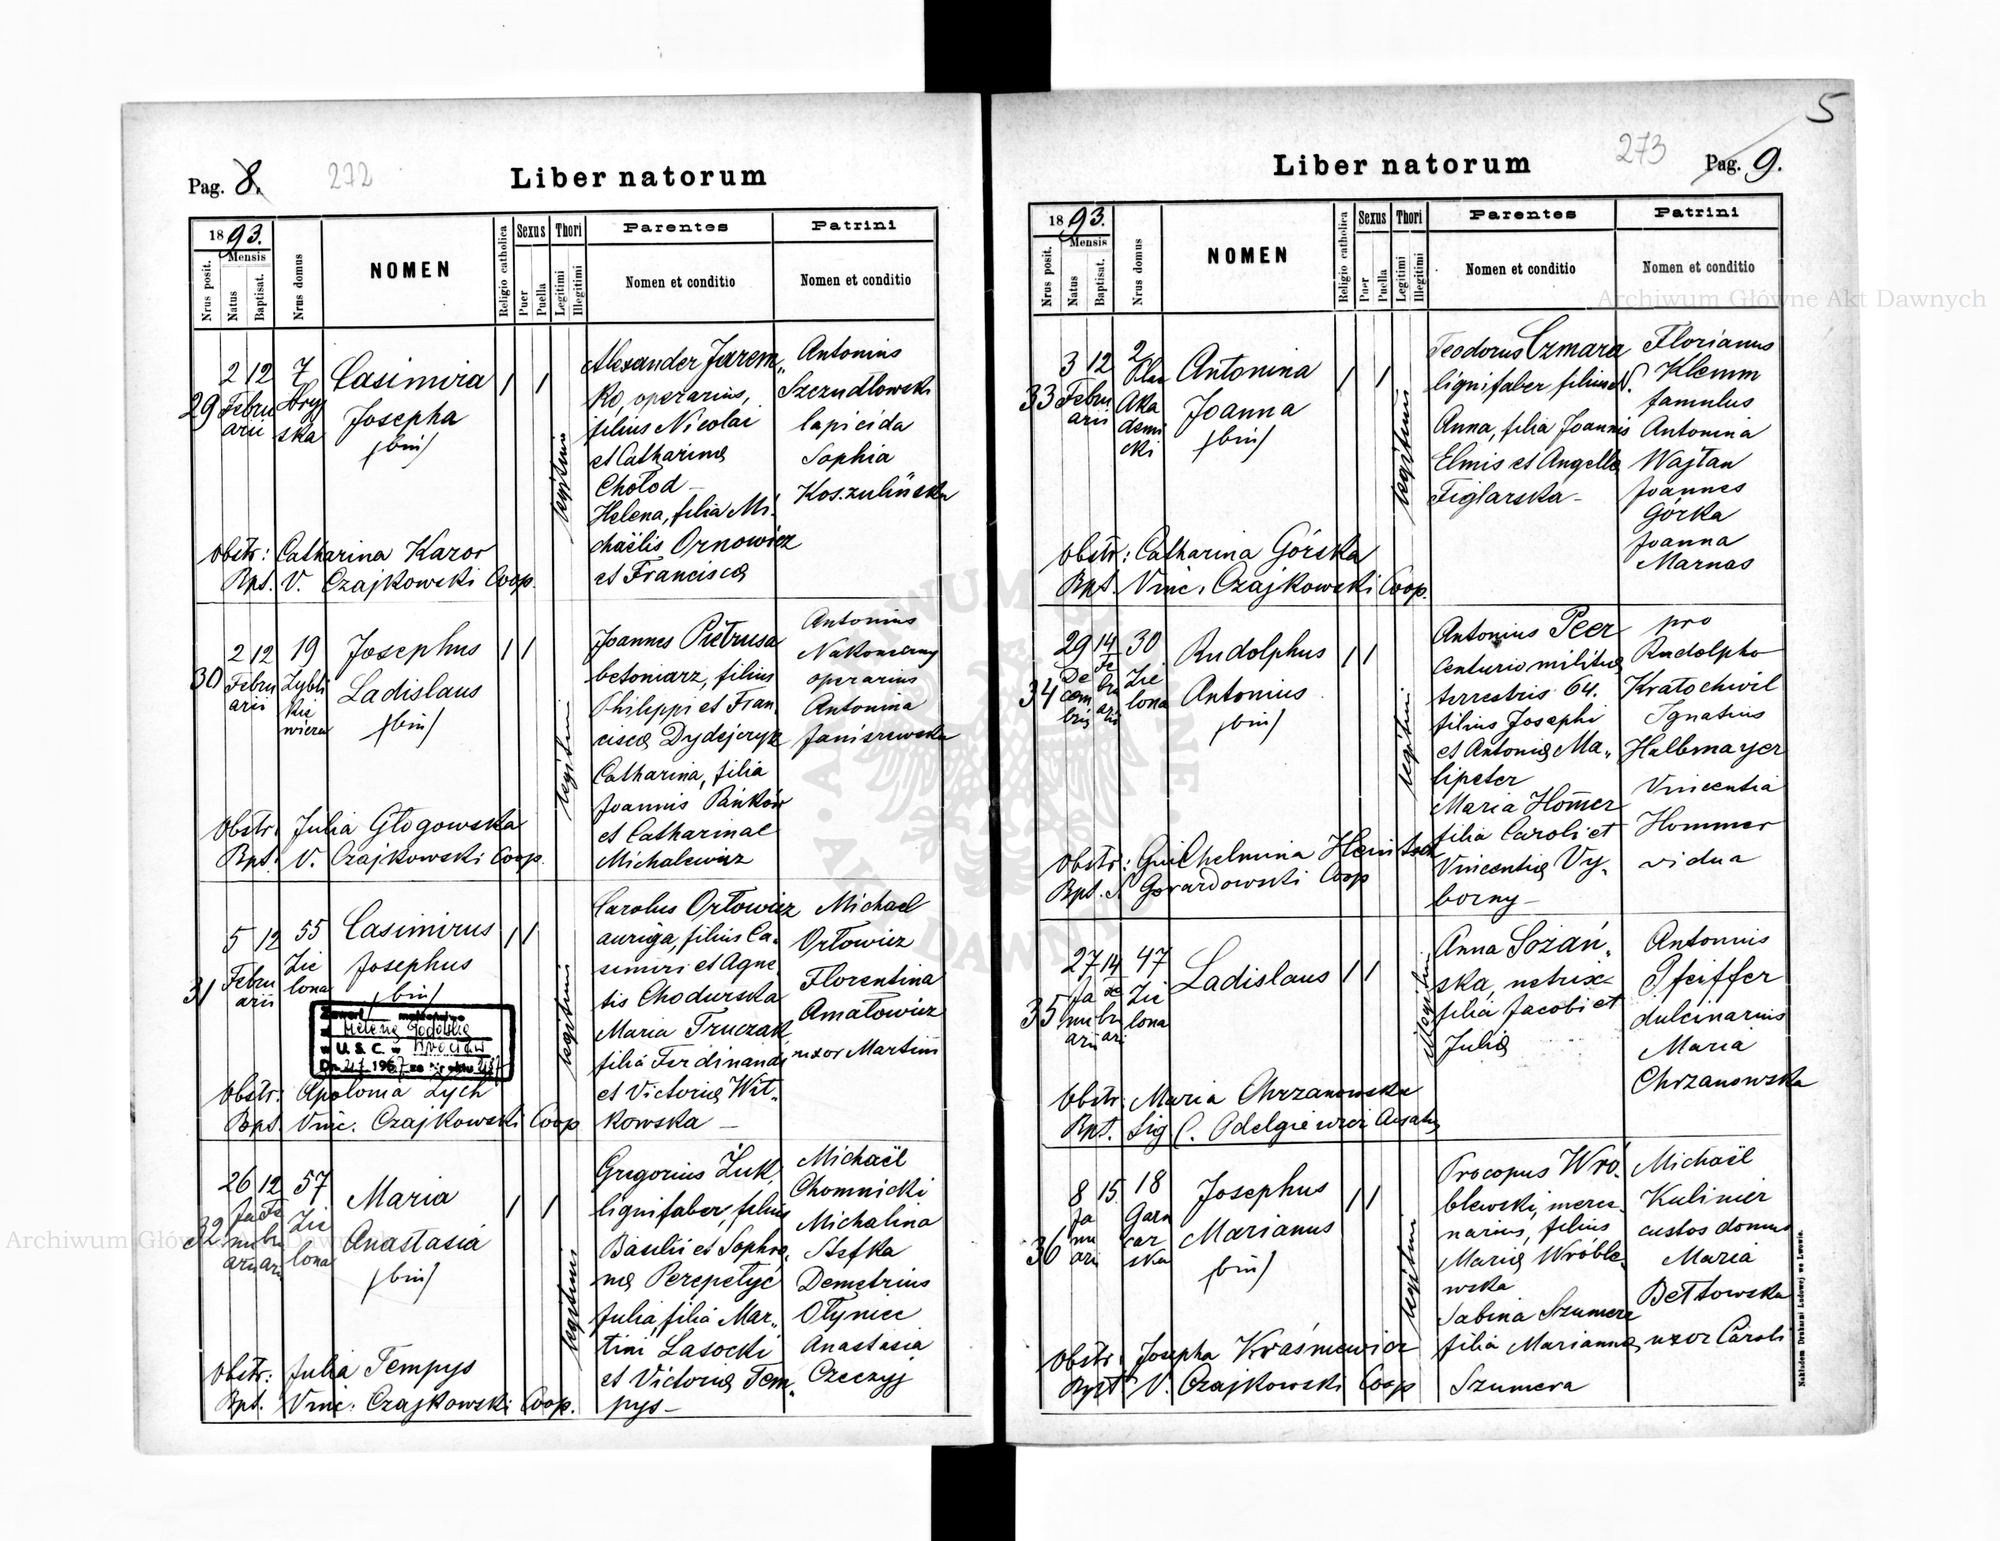 Pag. 8.
272
Liber natorum
1893.
Mensis
Nrus posit.
Natus
Baptisat.
Nrus domus
NOMEN
Religio catholica
Sexus
Puer
Puella
Thori
Legitimi
Illegitimi
Parentes
Nomen et conditio
Patrini
Nomen et conditio
29
2 12
Febru
arii
7
Stryj
ska
Casimira
Josepha
(bin)
legitimi
Alexander Jarem„
ko, operarius,
filius Nicolai
et Catharinę
Chołod –
Helena, filia Mi-
chaëlis Ornowicz
et Franciscę
Antonius
Szczudłowski
lapicida
Sophia
Koszulińska
Obstr: Catharina Kazor
Bpt. V. Czajkowski Coop.
30
2 12
Febru
arii
19
Zybli
kie
wicza
Josephus
Ladislaus
(bin)
legitimi
Joannes Pietrusa
betoniarz, filius
Philippi et Fran„
ciscę Dydejczyk
Catharina, filia
Joannis Pańków
et Catharinae
Michalewicz
Antonius
Nakonieczny
operarius
Antonina
Janiszewska
Obstr. Julia Głogowska
Bpt. V. Czajkowski Coop.
31
5 12
Febru
arii
55
Zie
lona
Casimirus
Josephus
(bin)
legitimi
Carolus Orłowicz
auriga, filius Ca„
simiri et Agne„
tis Chodurska
Maria Truczak
filia Ferdinandi
et Victorię Wit„
kowska –
Michaël
Orłowicz
Florentina
Amałowicz
uxor Martini
Zawarł małżeństwo
z Heleną
w U. S. C. w Wrocław
Obstr: Apolonia Zych
Bpt. Vinc. Czajkowski Coop
32
26 12
Ja Fe
nu bru
arii arii
57
Zie
lona
Maria
Anastasia
(bin)
legitimi
Gregorius Żuk,
lignifaber, filius
Basilii et Sophro„
nię Perepełyć
Julia, filia Mar„
tini Lasocki
et Victorię Tem„
pys –
Michaël
Chomnicki
Michalina
Stefka
Demetrius
Ołyniec
Anastasia
Czeczyj
Obstr: Julia Tempys
Bpt. Vinc. Czajkowski Coop.
5
273
Liber natorum
Pag. 9.
1893.
Mensis
Nrus posit.
Natus
Baptisat.
Nrus domus
NOMEN
Religio catholica
Sexus
Puer
Puella
Thori
Legitimi
Illegitimi
Parentes
Nomen et conditio
Patrini
Nomen et conditio
33
3 12
Febru
arii
2
Plac
Aka
demi
cki
Antonina
Joanna
(bin)
legitimi
Teodorus Czmara
lignifaber filius N.
Anna, filia Joannis
Elmis et Angelę
Figlarska –
Florianus
Klemm
famulus
Antonina
Wajtan
Joannes
Górka
Joanna
Marnas
Obstr: Catharina Górska
Bpt. Vinc. Czajkowski Coop.
34
29 14
De Fe
cem bru
bris arii
30
Zie
lona
Rudolphus
Antonius
(bin)
legitimi
Antonius Peer
centurio militię
terrestris 64.
filius Josephi
et Antonię Ma„
lipeter
Maria Hom̄er
filia Caroli et
Vincentię Vy„
borny –
pro
Rudolpho
Kratochwil
Ignatius
Halbmayer
Vincentia
Hommer
vidua
Obstr: Guilhelmina Heintsch
Bpt. Gorardowski Coop
35
27 14
Ja Fe
nu bru
arii arii
47
Zie
lona
Ladislaus
illegitimi
Anna Sozań„
ska, nutrix
filia Jacobi et
Julię
Antonius
Pfeiffer
dulcinarius
Maria
Chrzanowska
Obstr: Maria Chrzanowska
Bpt. Sig C. Odelgiewicz
36
8 15
Ja
nu
arii
18
Garn
car
ska
Josephus
Marianus
(bin)
legitimi
Procopus Wró„
blewski, merce„
narius, filius
Marię Wróble„
wska
Sabina Szumera
filia Mariannę
Szumera
Michaël
Kulinier
custos domus
Maria
Bełtowska
uxor Caroli
Obstr: Josepha Kraśniewicz
Bpt. V. Czajkowski Coop
Nakładem Drukarni Ludowej we Lwowie.
Archiwum Główne Akt Dawnych
Archiwum Główne Akt Dawnych
ARCHIWUM GŁÓWNE AKT DAWNYCH